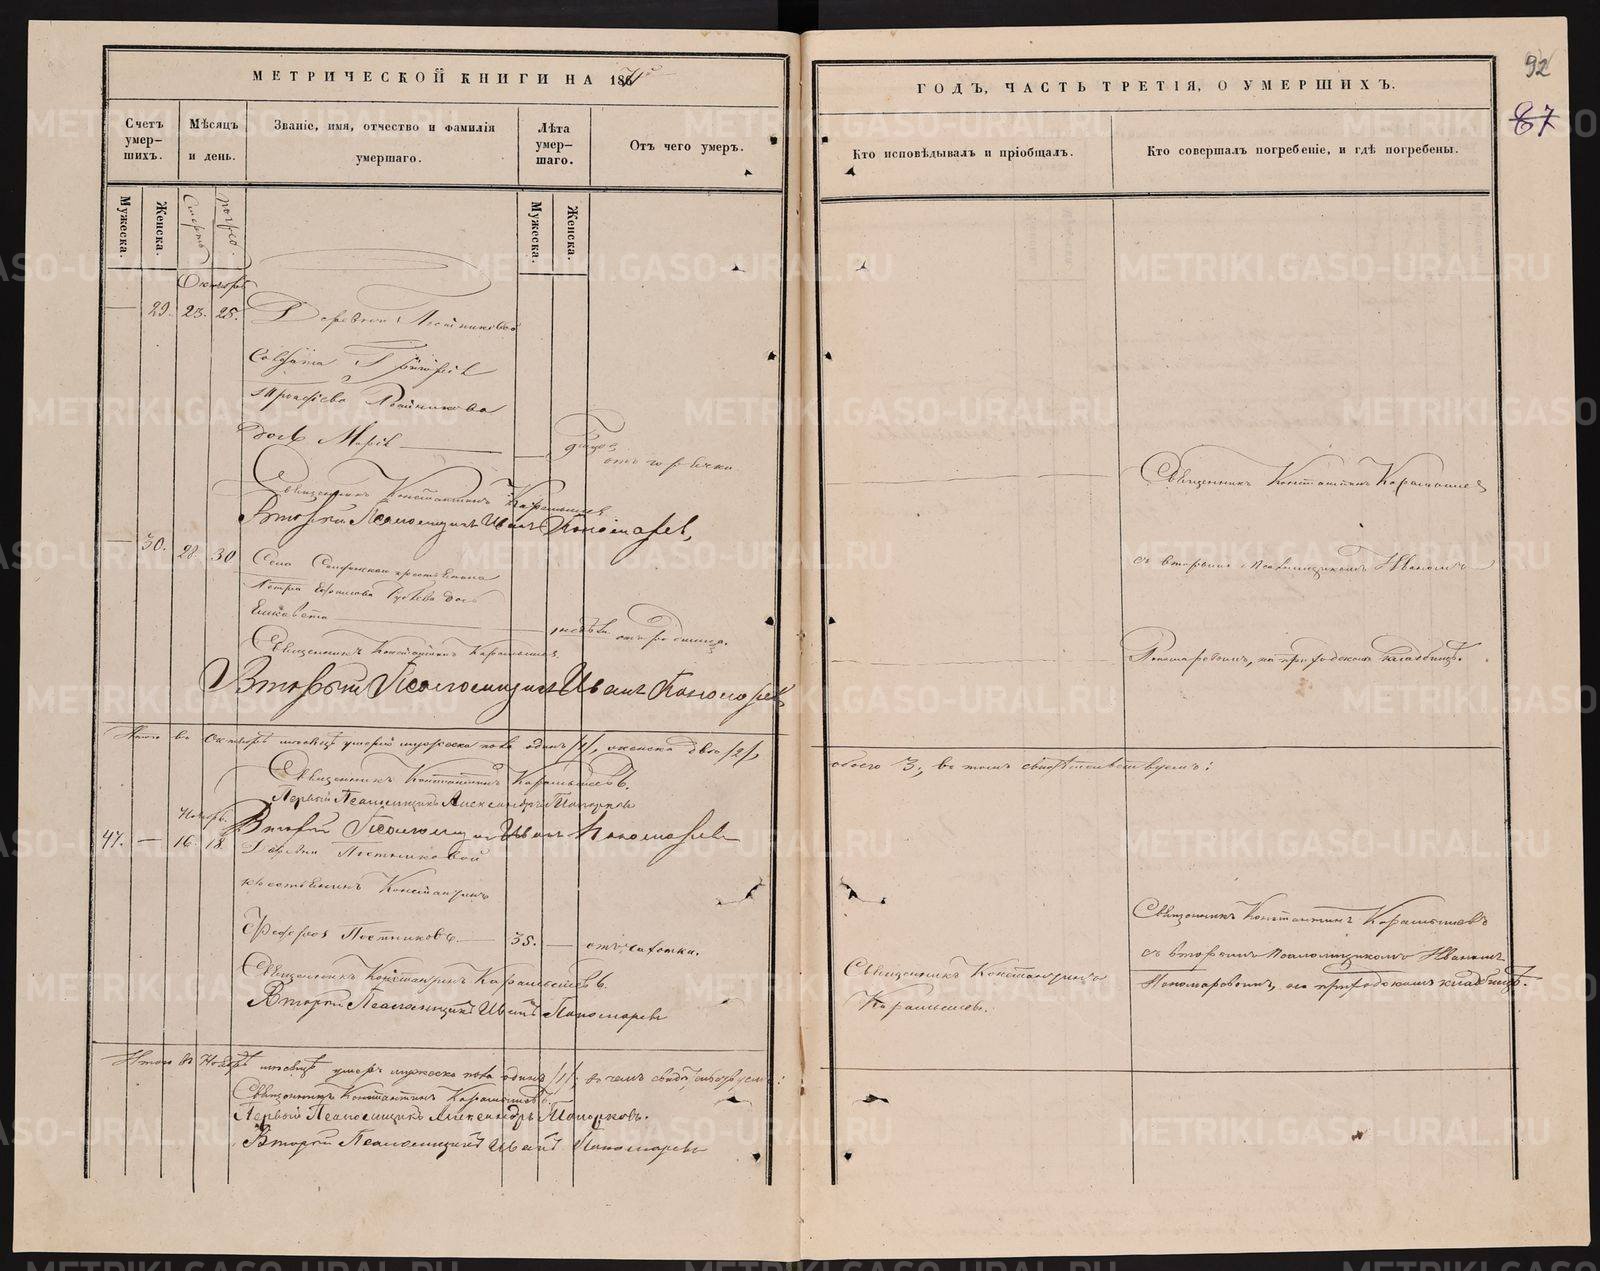 МЕТРИЧЕСКОЙ КНИГИ НА 1871й
ГОДЪ, ЧАСТЬ ТРЕТІЯ, О УМЕРШИХЪ.
92
87
Счетъ умер-
шихъ.
Мѣсяцъ
и день.
Званіе, имя, отчество и фамилія
умершаго.
Лѣта
умер-
шаго.
Отъ чего умеръ.
Кто исповѣдывалъ и пріобщалъ.
Кто совершалъ погребеніе, и гдѣ погребены.
Мужеска.
Женска.
Смерть
погреб.
Мужеска.
Женска.
Октябрь
29. 23. 25. Деревни Постниковой
Солдата Григорія
Постникова
дочь Марія
отъ горячки
Священникъ Константинъ Карамышев
Священникъ Константинъ Карамышевъ
Второй Псаломщикъ Иванъ Пономаревъ
30. 28. 30 Села
съ вторымъ Псаломщикомъ Иваномъ
Петра дочь
Елисавета
отъ родимца.
Священникъ Константинъ Карамышев.
Пономаревымъ, на приходскомъ кладбищѣ.
Второй Псаломщикъ Иванъ Пономаревъ
Итого въ Октябрѣ мѣсяцѣ умерло мужеска пола одинъ /1/, женска двѣ /2/,
обоего 3, въ томъ свидѣтельствуемъ:
Священникъ Константинъ Карамышевъ.
Первый Псаломщикъ Александръ Топорковъ
Второй Псаломщикъ Иванъ Пономаревъ
Ноябрь
47. 16. 18. Деревни Постниковой
крестьянинъ Константинъ
Постниковъ. 35. отъ чахотки.
Священникъ Константинъ Карамышевъ
съ вторымъ Псаломщикомъ Иваномъ
Священникъ Константинъ
Карамышевъ.
Пономаревымъ, на приходскомъ кладбищѣ.
Священникъ Константинъ Карамышевъ.
Второй Псаломщикъ Иванъ Пономаревъ
Итого въ Ноябрѣ мѣсяцѣ умеръ мужеска пола одинъ /1/, въ чемъ свидѣтельствуемъ:
Священникъ Константинъ Карамышевъ.
Первый Псаломщикъ Александръ Топорковъ.
Второй Псаломщикъ Иванъ Пономаревъ
METRIKI.GASO-URAL.RU